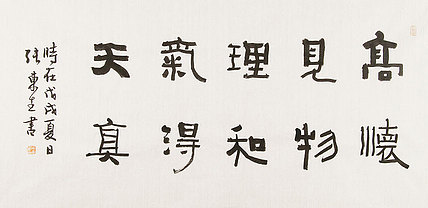 高懷
見物
理和
氣得
天真
時在戊戌夏日
張東書